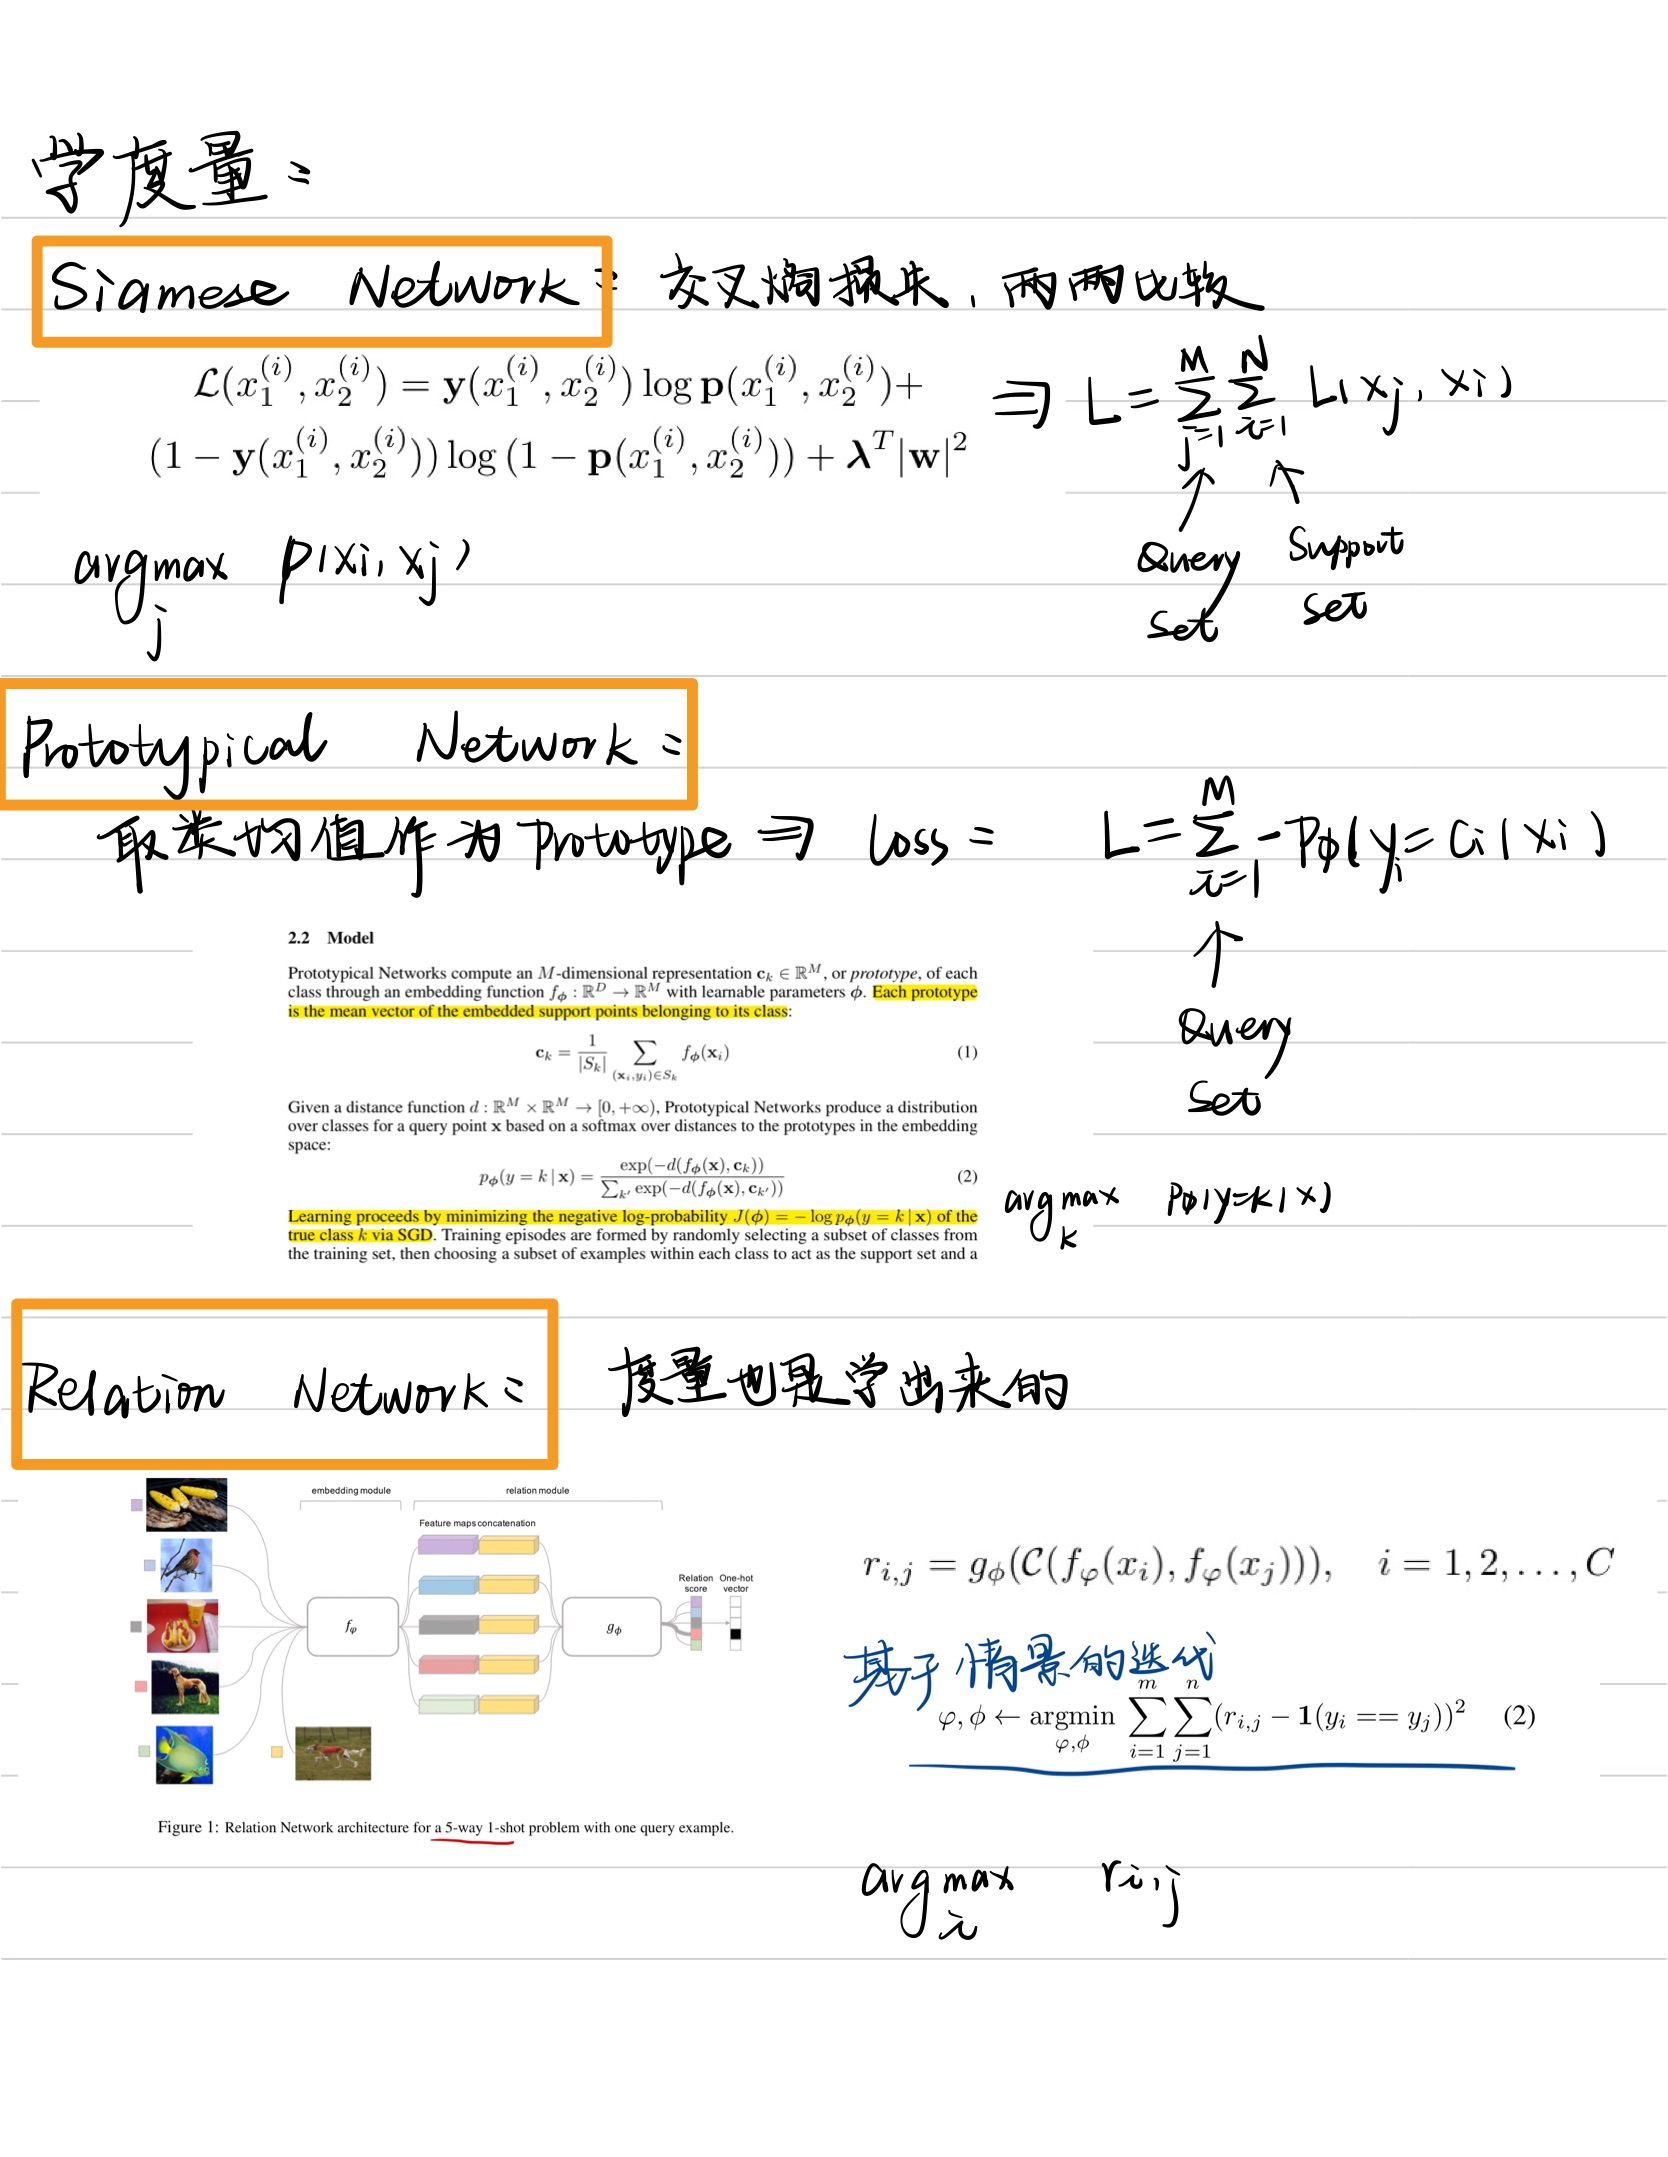 学度量:
Siamese Network: 交叉熵损失，两两比较
L(x₁⁽ⁱ⁾, x₂⁽ⁱ⁾) = y(x₁⁽ⁱ⁾, x₂⁽ⁱ⁾) log p(x₁⁽ⁱ⁾, x₂⁽ⁱ⁾)+
(1 − y(x₁⁽ⁱ⁾, x₂⁽ⁱ⁾)) log (1 − p(x₁⁽ⁱ⁾, x₂⁽ⁱ⁾)) + λᵀ|w|²
⇒ L = ∑_{j=1}^{M} ∑_{i=1}^{N} L(xj, xi)
Query Set
Support Set
argmax_j p(xi, xj)
Prototypical Network:
取类均值作为 prototype ⇒ loss: L = ∑_{i=1}^{M} -Pϕ(yi = Ci | xi)
Query
Set
2.2 Model
Prototypical Networks compute an M-dimensional representation c_k ∈ ℝ^M, or prototype, of each
class through an embedding function f_ϕ : ℝ^D → ℝ^M with learnable parameters ϕ. Each prototype
is the mean vector of the embedded support points belonging to its class:
c_k = 1/|S_k| ∑_{(x_i,y_i)∈S_k} f_ϕ(x_i) (1)
Given a distance function d : ℝ^M × ℝ^M → [0, +∞), Prototypical Networks produce a distribution
over classes for a query point x based on a softmax over distances to the prototypes in the embedding
space:
p_ϕ(y = k | x) = exp(−d(f_ϕ(x), c_k)) / ∑_{k'} exp(−d(f_ϕ(x), c_{k'})) (2)
argmax_k Pϕ(y=k|x)
Learning proceeds by minimizing the negative log-probability J(ϕ) = − log p_ϕ(y = k | x) of the
true class k via SGD. Training episodes are formed by randomly selecting a subset of classes from
the training set, then choosing a subset of examples within each class to act as the support set and a
Relation Network: 度量也是学出来的
embedding module
relation module
Feature maps concatenation
Relation score
One-hot vector
f_φ
g_ϕ
r_{i,j} = g_ϕ(C(f_φ(x_i), f_φ(x_j))), i = 1, 2, . . . , C
基于情景的迭代
φ, ϕ ← argmin_{φ,ϕ} ∑_{i=1}^{m} ∑_{j=1}^{n} (r_{i,j} − 1(y_i == y_j))² (2)
Figure 1: Relation Network architecture for a 5-way 1-shot problem with one query example.
argmax_i ri,j